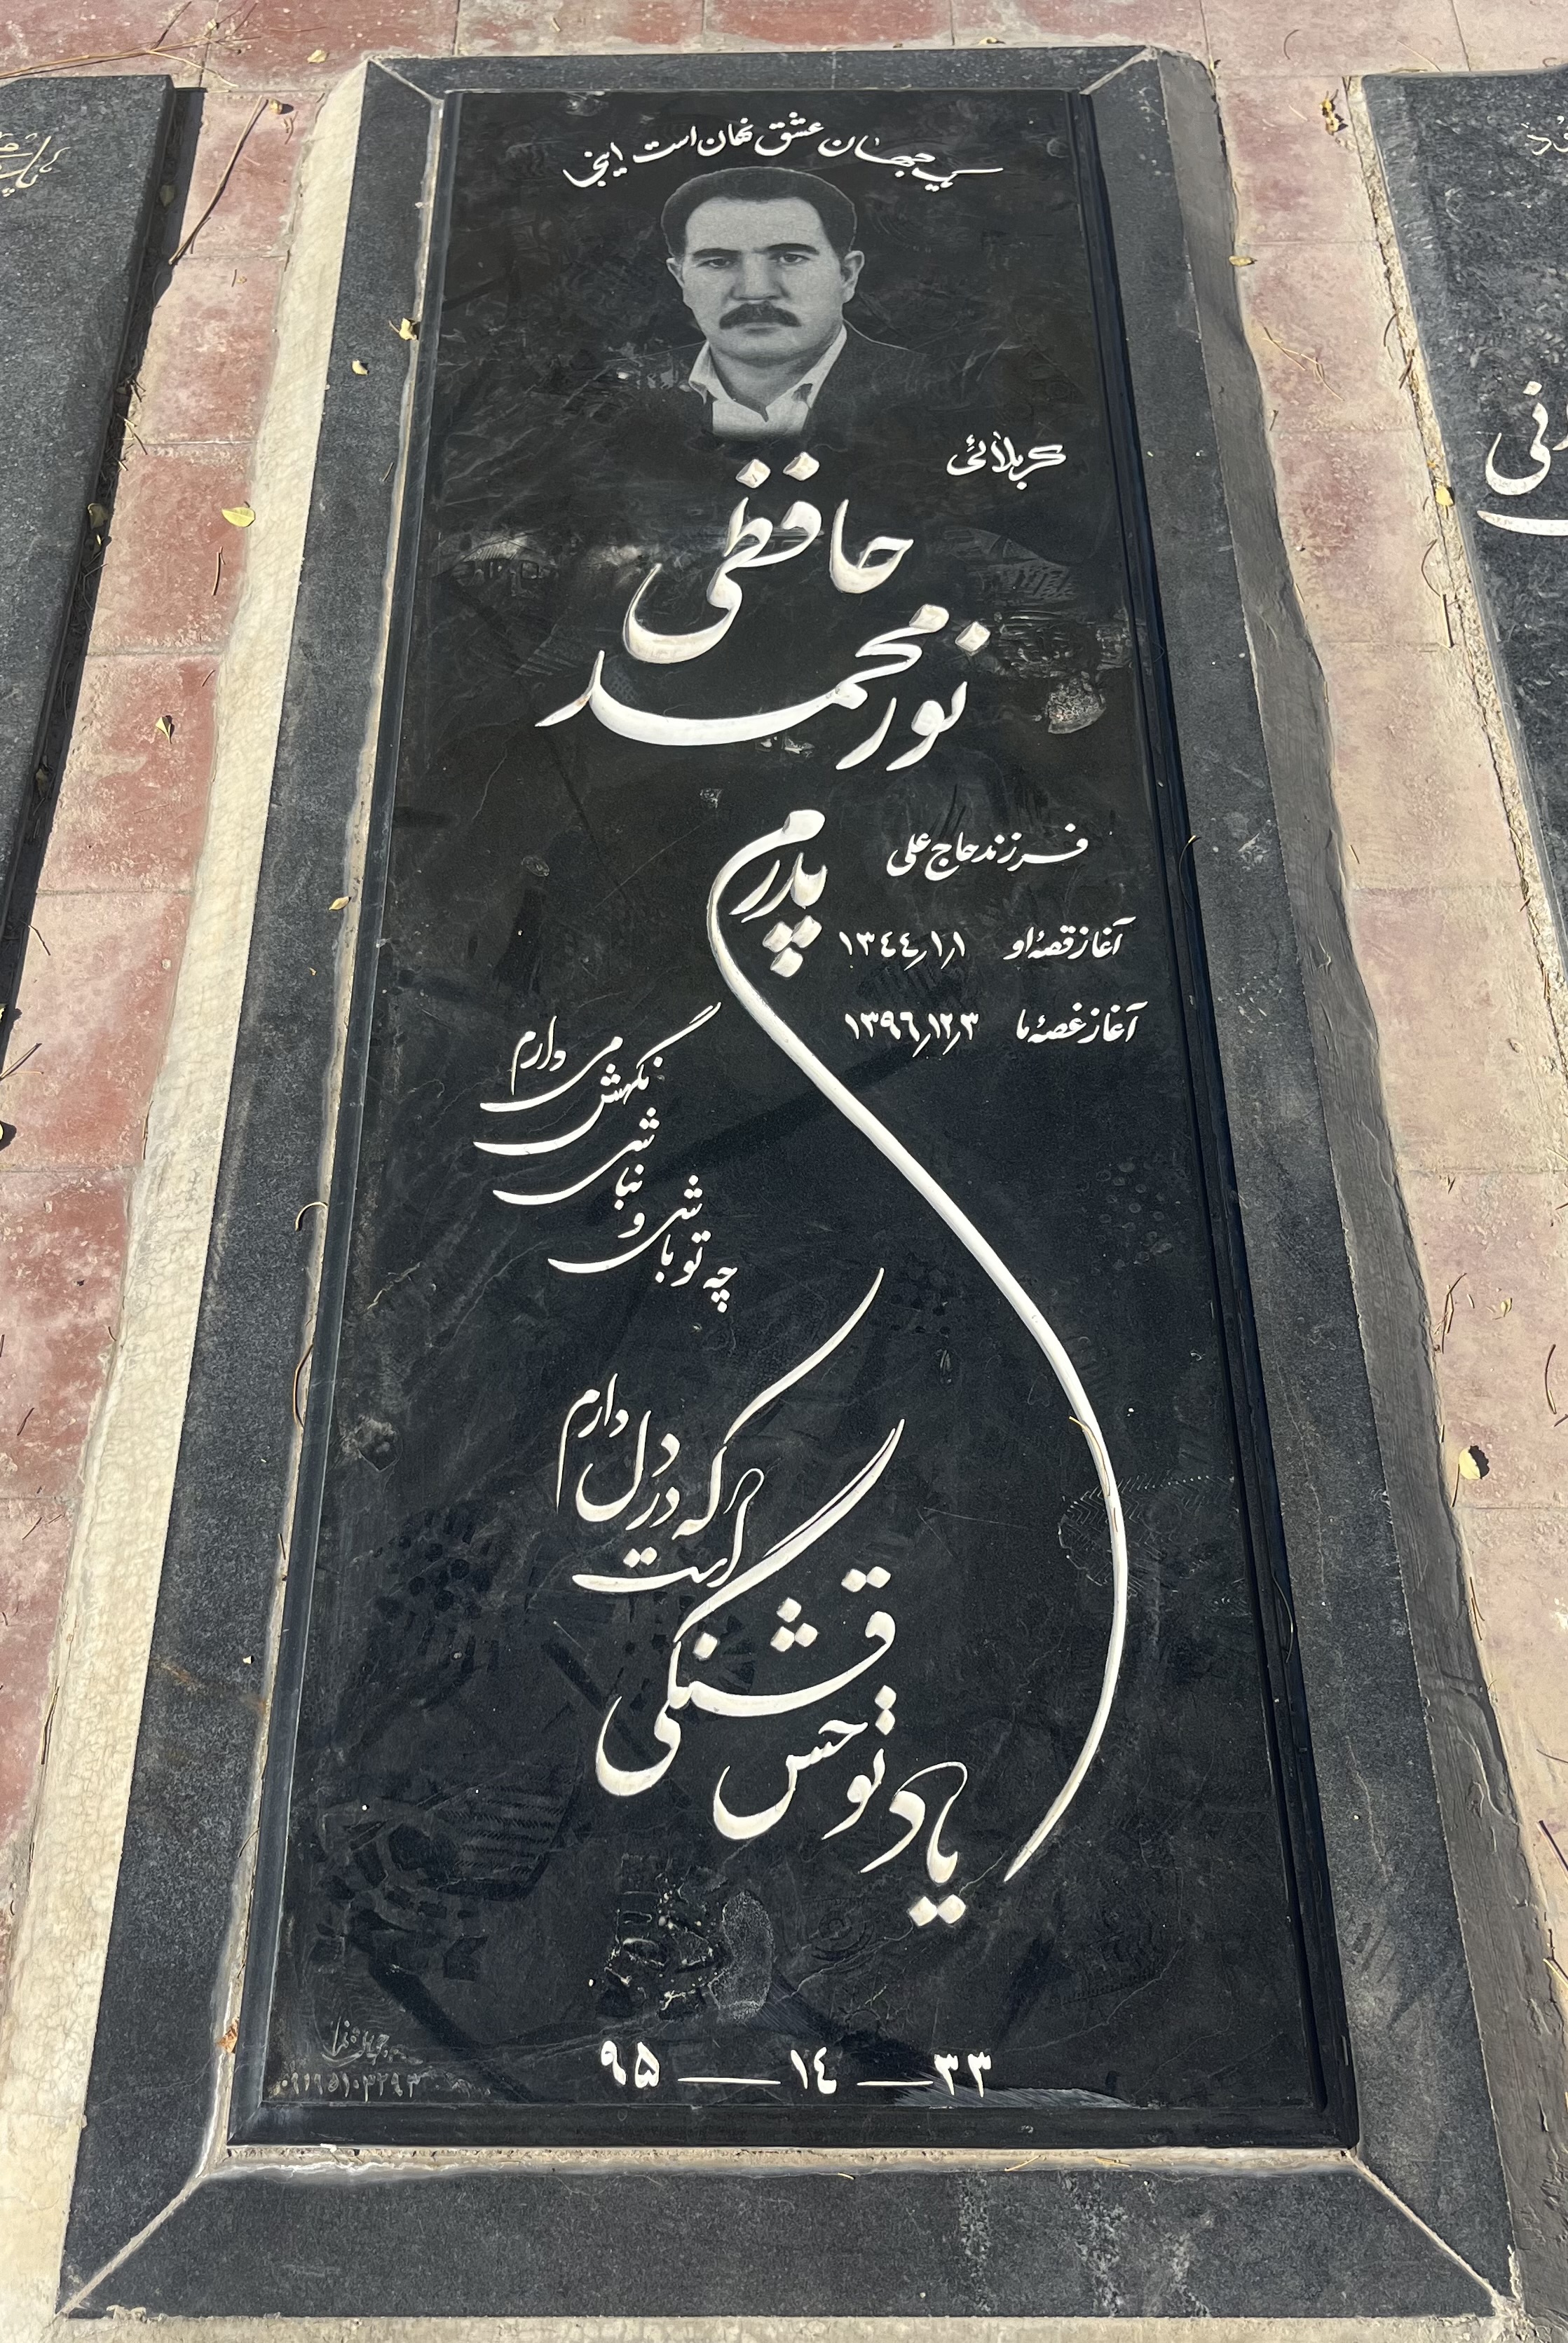 یک جهان عشق نهان است اینجا
کربلائی
حافظی
نورمحمد
فرزند حاج علی
پدرم
آغاز قصهٔ او ۱۳۴۴٫۱٫۱
آغاز غصهٔ ما ۱۳۹۶٫۱۲٫۳
یاد تو حس
قشنگی
است که در دل دارم
چه تو باشی و
نباشی
نگهش
می دارم
۹۵ — ۱۴ — ۳۳